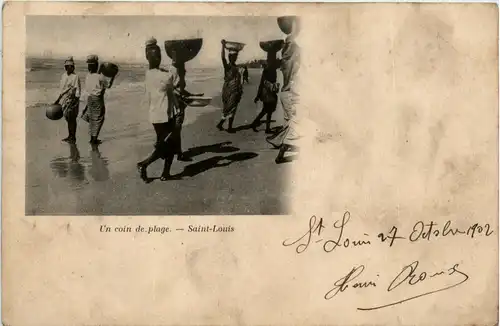 Un coin de plage. — Saint-Louis
St Louis 27 Octobre 1902
Henri